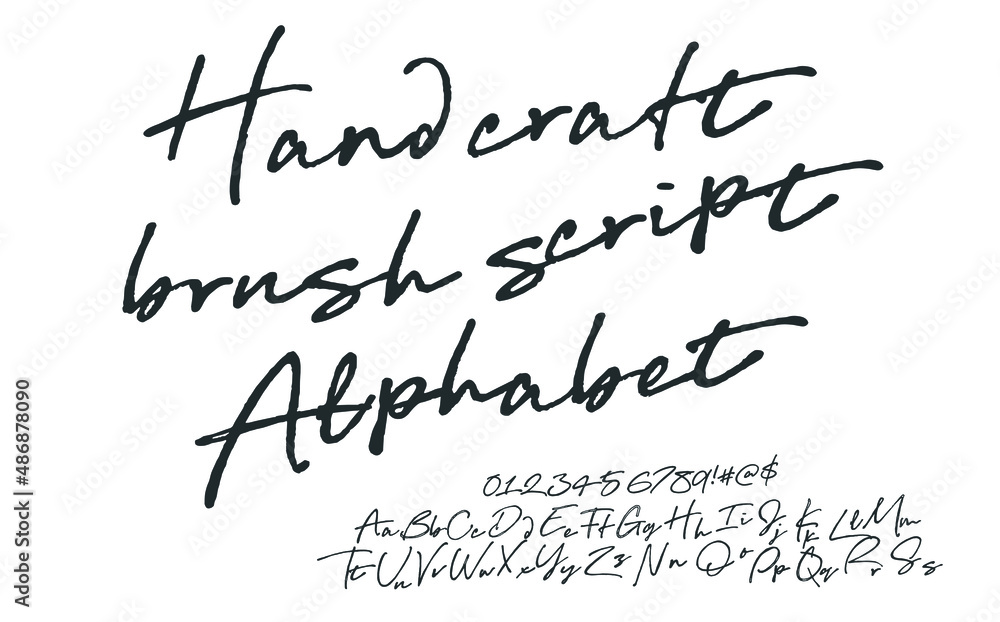 Handcraft
brush script
Alphabet
0123456789!#@$
Aa Bb Cc Dd Ee Ff Gg Hh Ii Jj Kk Ll Mm
Tt Uu Vv Ww Xx Yy Zz Nn Oo Pp Qq Rr Ss
Adobe Stock | #486878090